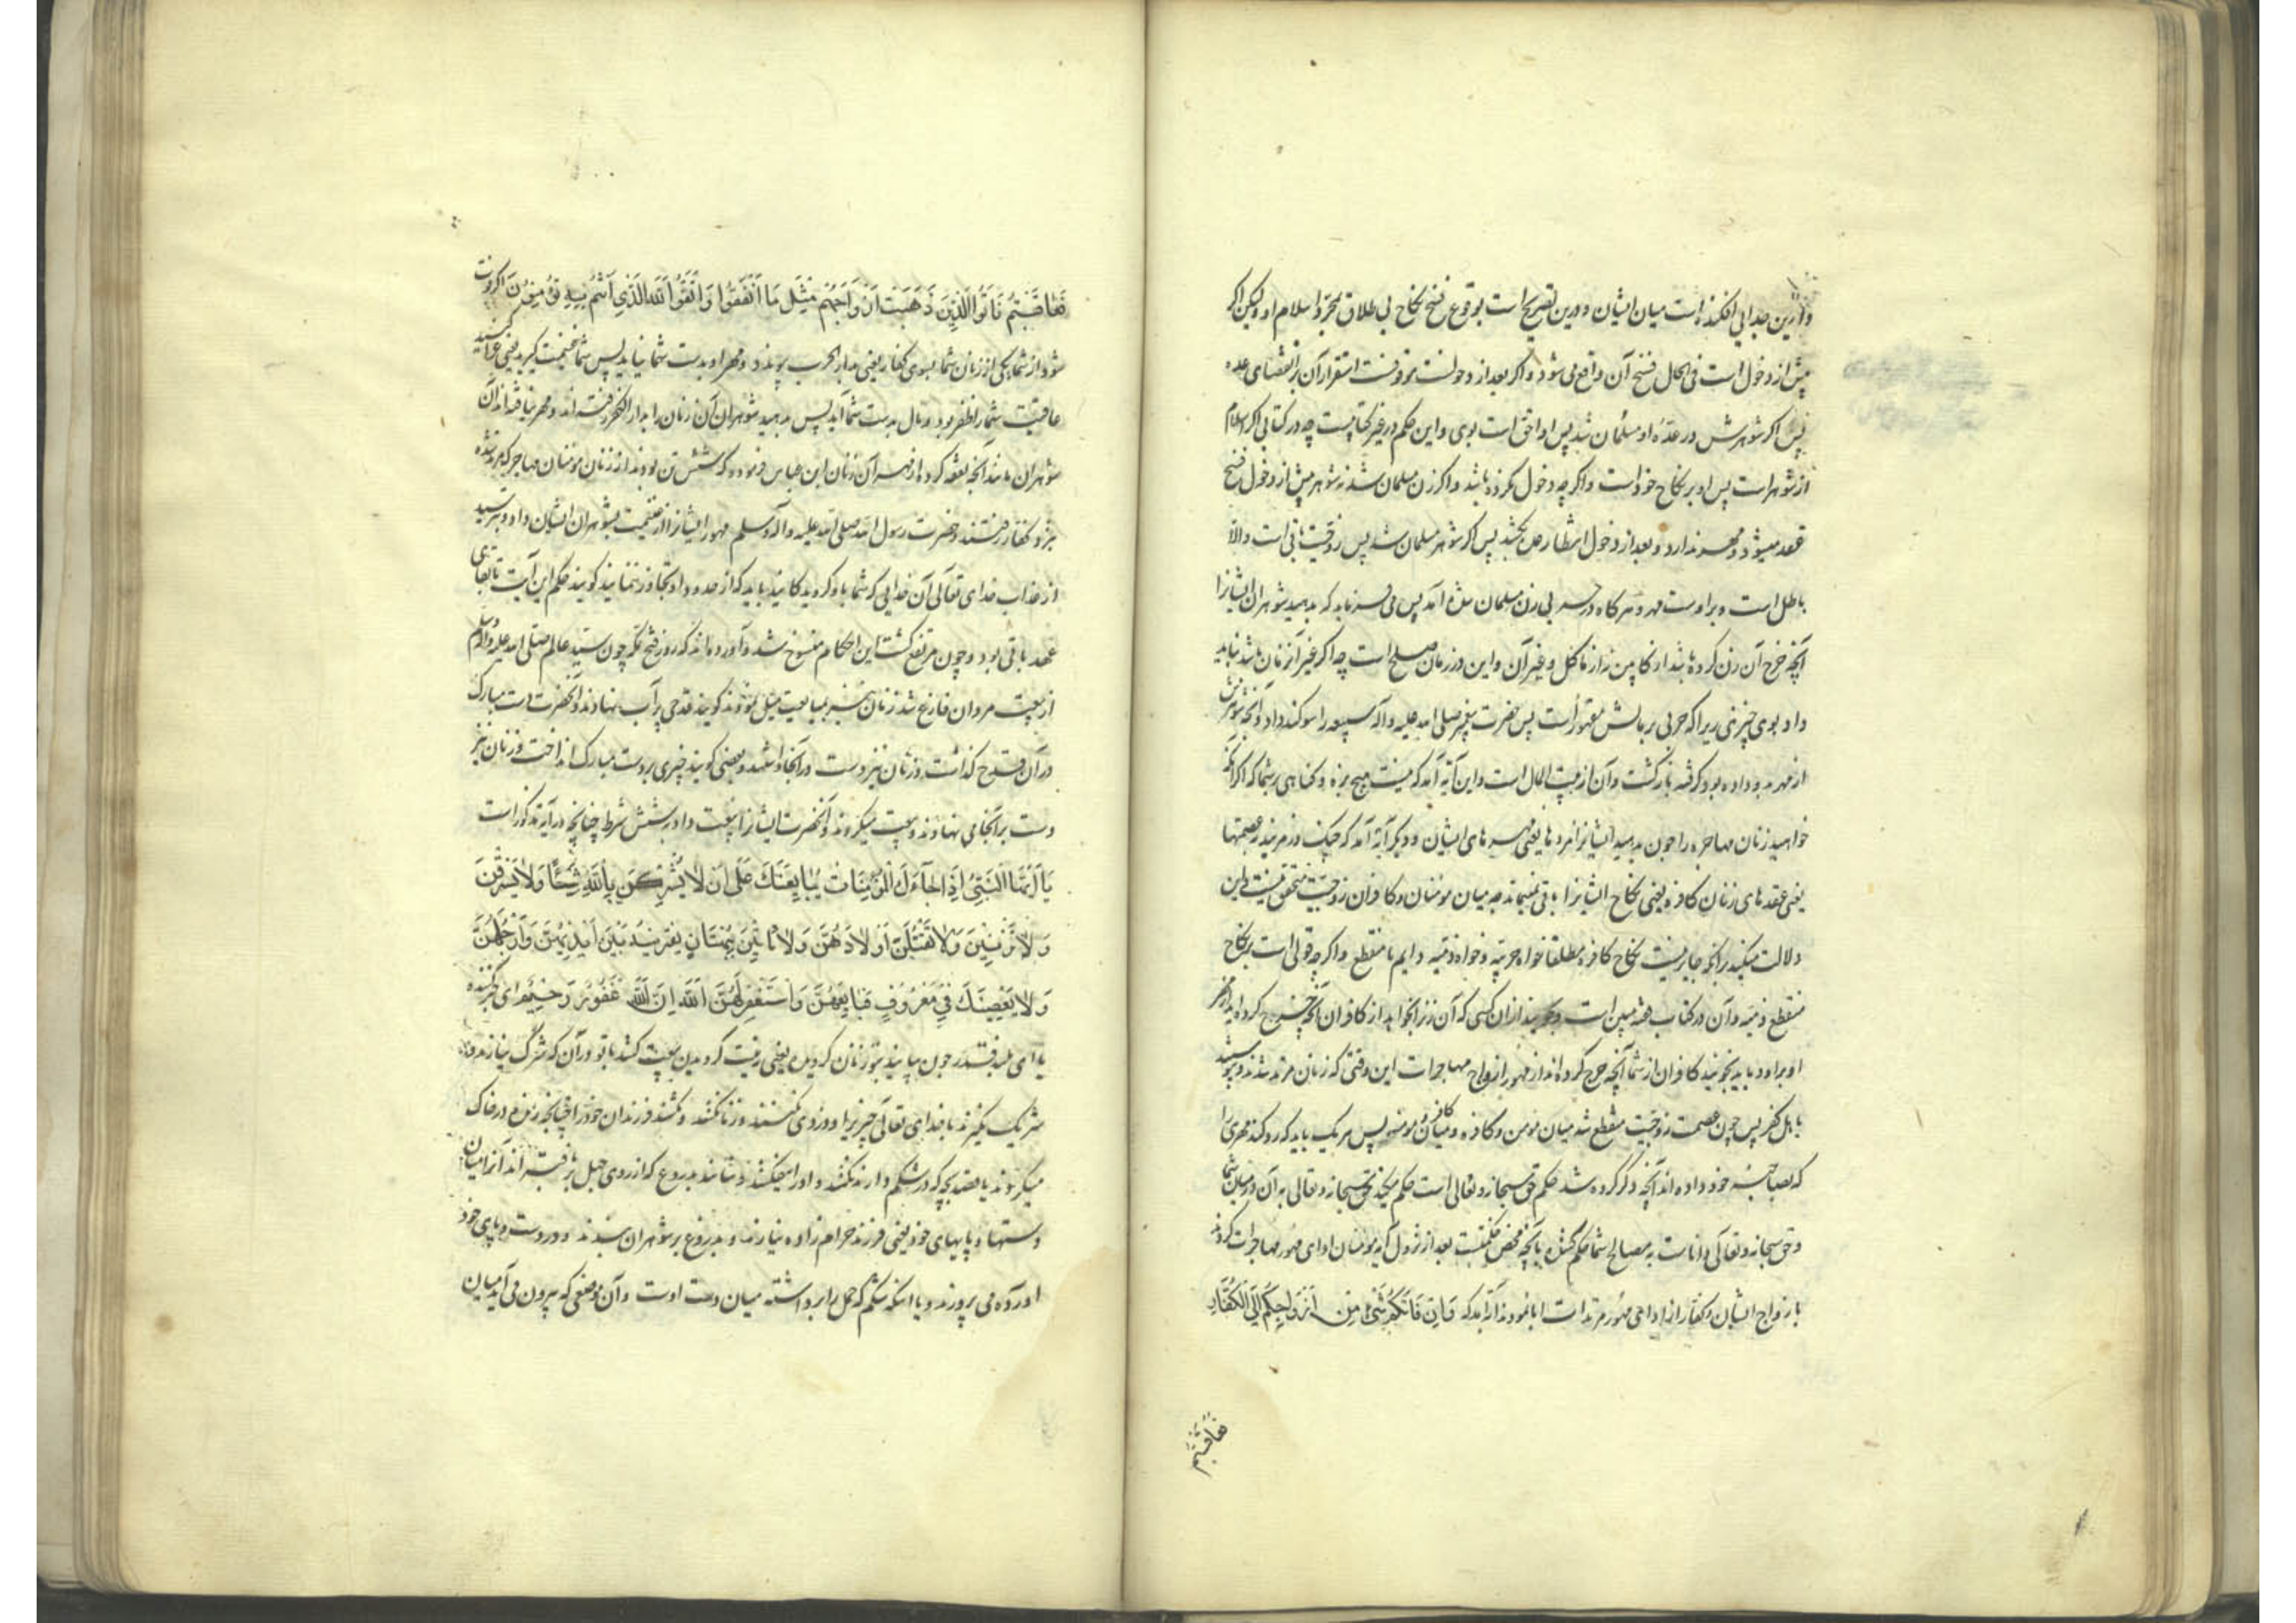 و از این جدایی افکنده است میان ایشان و درین تصریح است بوقوع فسخ نکاح بی طلاق بمجرد اسلام او ولیکن اکر
پیش از دخول است فی الحال فسخ آن واقع می شود و اکر بعد از دخولست موقوفست استقرار آن بر انقضای عده
پس اکر شوهرش در عدّه او مسلمان شد پس او احق است بوی و این حکم در غیر کتابیست چه در کتابی اکر اسلام
از شوهر است پس او بر نکاح خود است و اکر چه دخول نکرده باشد و اکر زن مسلمان شد نه شوهر پیش از دخول فسخ
عقد میشود و مهر ندارد و بعد از دخول انتظار می کشد پس اکر شوهر مسلمان شد پس زوجیت باقی است والا
باطل است و بر اوست مهر و هرکاه در حربی زن مسلمان شده آمد پس می فرماید که بدهید شوهران ایشانرا
آنچه خرج آن زن کرده باشد از کابین نه از ماکل و غیر آن و این در زمان صلح است چه اکر غیر آنزمان باشد نباید
داد بوی چیزی زیرا که حربی بر مالش مقهور است پس حضرت پیغمبر صلی الله علیه و آله سبیعه را سوکند داد و آنچه شوهرش
از مهر بدو داده بود کرفته باز کشت و آن از بیت المال است و این آیه آمد که نیست هیچ بزه و کناهی بر شما که اکر نکاح
خواهید زنان مهاجره را چون بدهید ایشانرا مزدها یعنی مهرهای ایشان و دیکر آیه آمد که چنک در مزنید بعصمتها
یعنی عقدهای زنان کافره یعنی نکاح ایشانرا باقی نمیماند چه میان مومنان و کافران زوجیت متحقق نیست و این
دلالت میکند بر آنکه جایز نیست نکاح کافره مطلقا خواه حربیه و خواه ذمیه دایم یا منقطع و اکر چه قولی است بر نکاح
منقطع ذمیه و آن در کتاب فقه مبین است و بجویید از آن کسی که آن زنرا بخواهد از کافران آنچه خرج کرده اید از مهر
او برا و باید بجویند کافران از شما آنچه خرج کرده اند از مهور ازواج مهاجرات این وقتی که زنان مرتد شدند و پیوسته
باهل کفر پس چون عصمت زوجیت منقطع شد میان مومن و کافره و میان کافر و مومنه پس هر یک باید که رد کند مهری را
که بصاحبه خود داده اند آنچه ذکر کرده شد حکم حق سبحانه و تعالی است حکم میکند حق سبحانه و تعالی به آن در میان شما
و حق سبحانه و تعالی داناست به مصالح شما حکم کننده بآنچه محض حکمتست بعد از نزول آیه مومنان ادای مهور مهاجرات کردند
بازواج ایشان و کفار از ادای مهور مرتدات ابا نمودند آیه آمد که وَاِنْ فَاتَكُمْ شَىْءٌ مِنْ اَزْوَاجِكُمْ اِلَى الْكُفَّارِ
فعاقبتم
فَعَاقَبْتُمْ فَاتُوا الَّذِينَ ذَهَبَتْ اَزْوَاجُهُمْ مِثْلَ مَا اَنْفَقُوا وَاتَّقُوا اللَّهَ الَّذِى اَنْتُمْ بِهِ مُؤْمِنُونَ اکر فوت
شود از شما یکی از زنان شما بسوی کفار یعنی بدار الحرب پیوندد و مهر او بدست شما نیاید پس شما غنیمت کیرید یعنی غزا کنید
عاقبت شما را ظفر بود و مال بدست شما آید پس بدهید شوهران آن زنان را بدار الکفر رفته اند و مهر نیافته اند آن
شوهران مانند آنچه نفقه کرده از مهر آن زنان ابن عباس فرموده که شش تن بودند از زنان مومنان مهاجر که مرتد شده
بنزد کفار رفتند و حضرت رسول الله صلی الله علیه و اله وسلم مهور ایشانرا از غنیمت بشوهران ایشان داد و بترسید
از عذاب خدای تعالی آن خدایی که شما باو کرویدکانید باید که از حدود او تجاوز ننمایید کویند حکم این آیت تا بقای
عهد باقی بود و چون مرتفع کشت این احکام منسوخ شد و آورده اند که روز فتح مکه چون سید عالم صلی الله علیه و اله وسلم
از بیعت مردان فارغ شد زنان نیز بمبایعت میل نمودند کویند قدحی پر آب نهادند و آنحضرت دست مبارک
در آن قدح کذاشت و زنان نیز دست در آنجا داشتند و بعضی کویند چیزی بر دست مبارک انداخت و زنان نیز
دست بر آنجای نهادند و بیعت میکردند و آنحضرت ایشانرا بیعت داد بر شش شرط چنانچه در آیه مذکور است
يَا اَيُّهَا النَّبِىُّ اِذَا جَاءَكَ الْمُؤْمِنَاتُ يُبَايِعْنَكَ عَلَى اَنْ لَا يُشْرِكْنَ بِاللَّهِ شَيْئًا وَلَا يَسْرِقْنَ
وَلَا يَزْنِينَ وَلَا يَقْتُلْنَ اَوْلَادَهُنَّ وَلَا يَأْتِينَ بِبُهْتَانٍ يَفْتَرِينَهُ بَيْنَ اَيْدِيهِنَّ وَاَرْجُلِهِنَّ
وَلَا يَعْصِينَكَ فِى مَعْرُوفٍ فَبَايِعْهُنَّ وَاسْتَغْفِرْ لَهُنَّ اللَّهَ اِنَّ اللَّهَ غَفُورٌ رَحِيمٌ ای خبر کننده
یا ای بلند قدر چون بیایند بتو زنان کرویده یعنی رغبت کرویدن بیعت کنند با تو در آن که شرک نیارند و
شریک نکیرند با خدای تعالی چیزیرا و دزدی نکنند و زنا نکنند و نکشند فرزندان خود را چنانچه زنده در خاک
میکردند یا قصد بچه که در شکم دارند نکنند و اورا نیفکنند و نیایند بدروغ که از روی جهل بر بافته اند آنرا میان
دستها و پایهای خود یعنی فرزند حرام زاده نیارند و بدروغ بر شوهران نبندند و در دست و پای خود
آورده می پرورند و یا آنکه شکم که حمل را برداشته میان دو دست اوست و آن موضعی که بیرون می آید میان